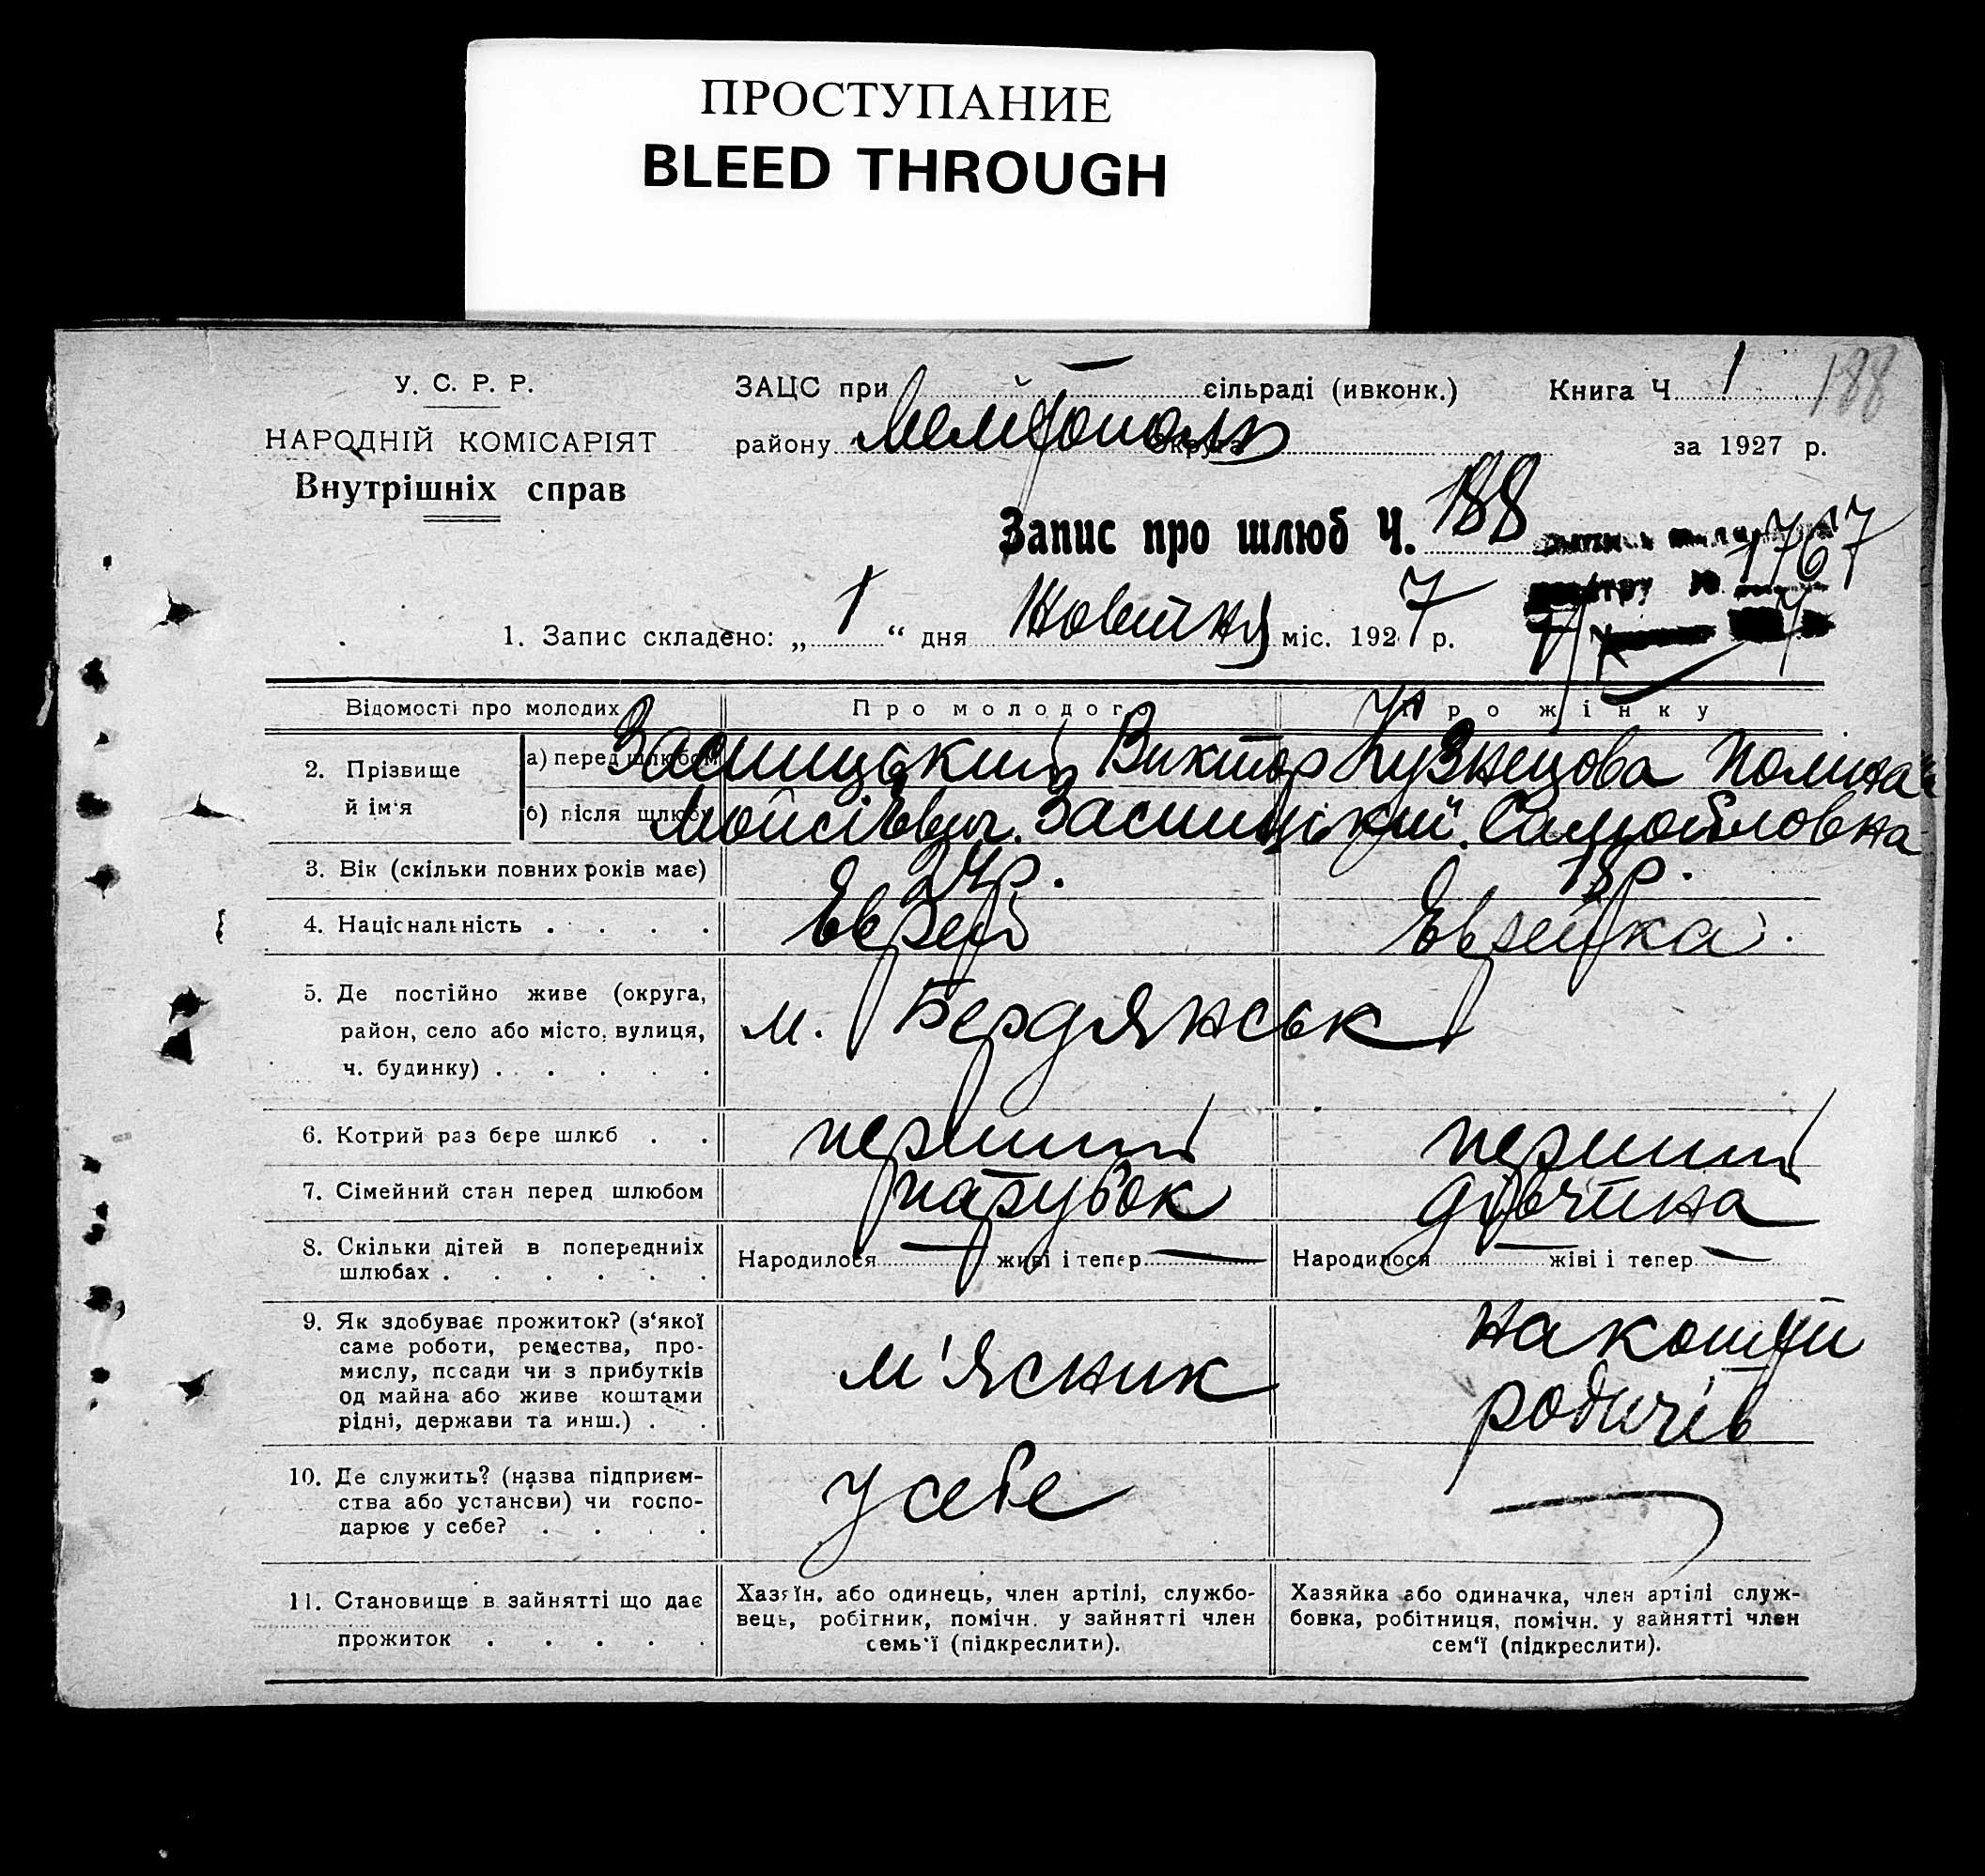 ПРОСТУПАНИЕ
BLEED THROUGH
У. С. Р. Р.
НАРОДНІЙ КОМІСАРІЯТ
Внутрішніх справ
ЗАЦС при сільраді (ивконк.)
району Мелітополь округа
Книга Ч. 1
188
за 1927 р.
Запис про шлюб Ч. 188
1767
1. Запис складено: „ 1 “ дня Жовтня міс. 1927 р.
Відомості про молодих
Про молодого
Про жінку
2. Прізвище й ім'я
а) перед шлюбом
Виктор Кузнецова Поліна
б) після шлюбу
Мойсієвич. Самойловна
3. Вік (скільки повних років має)
24 р. 18 р.
4. Національність . . . .
Еврей Еврейка.
5. Де постійно живе (округа,
район, село або місто, вулиця,
ч. будинку) . . . . .
м. Бердянськ
6. Котрий раз бере шлюб . .
перший перший
7. Сімейний стан перед шлюбом
парубок дівчина
8. Скільки дітей в попередниіх
шлюбах . . . . . .
Народилося — живі і тепер —
Народилося — жіві і тепер —
9. Як здобуває прожиток? (з‘якої
саме роботи, ремества, про-
мислу, посади чи з прибутків
од майна або живе коштами
рідні, держави та инш.) . .
м'ясник
на кошти
родичів
10. Де служить? (назва підприєм-
ства або установи) чи госпо-
дарює у себе? . . . .
у себе
—
11. Становище в зайнятті що дає
прожиток . . . . .
Хазяїн, або одинець, член артілі, службо-
вець, робітник, помічн. у зайнятті член
семь‘ї (підкреслити).
Хазяйка або одиначка, член артілі служ-
бовка, робітниця, помічн. у зайнятті член
сем‘ї (підкреслити).